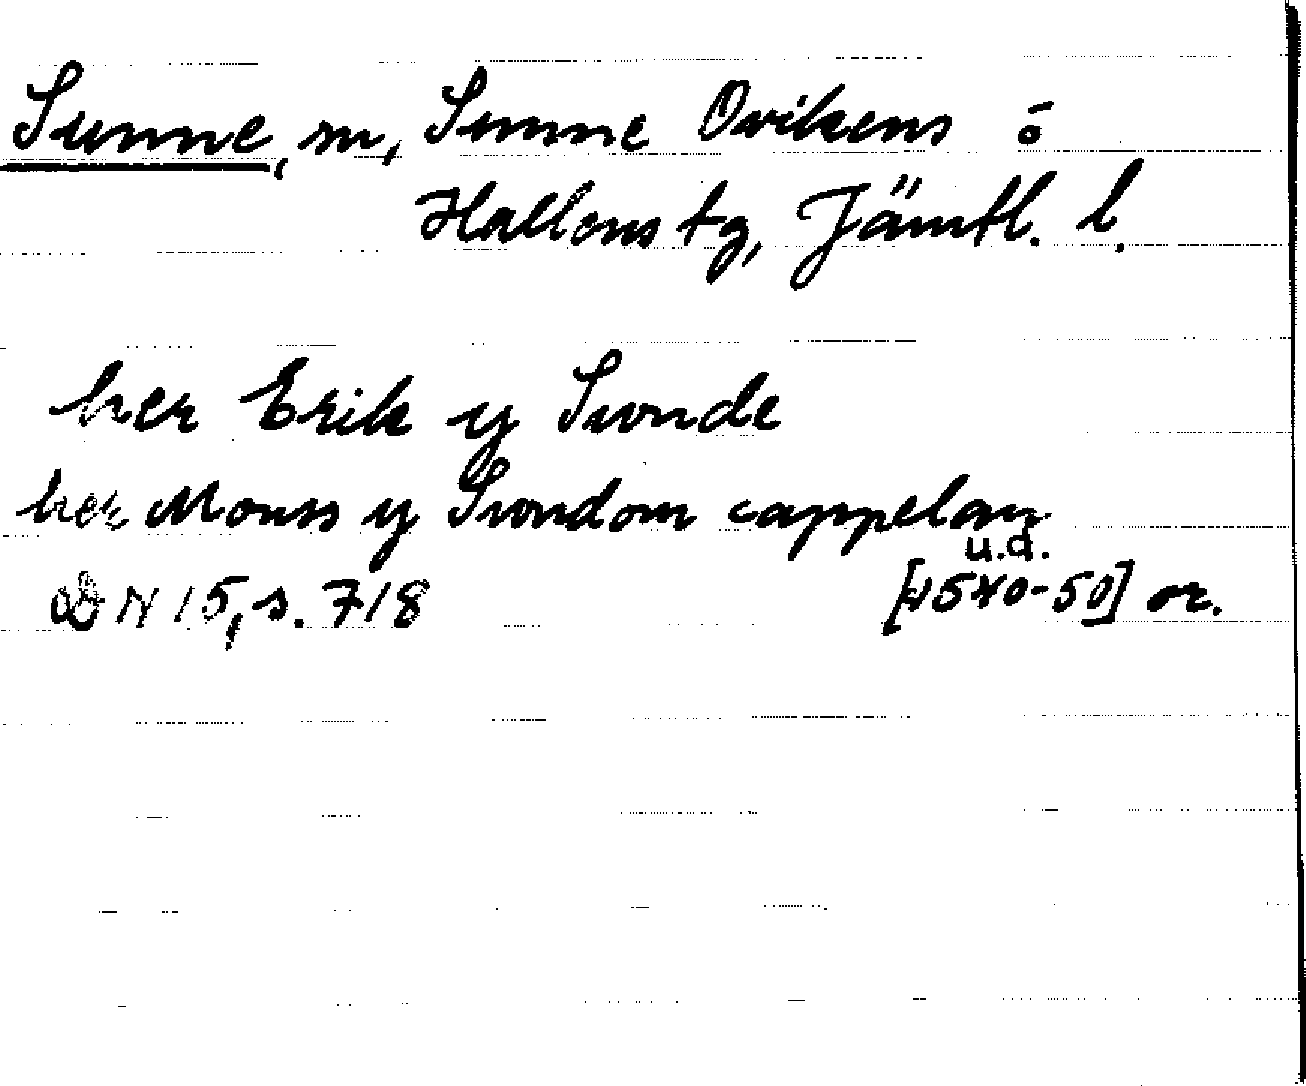 Sunne, sn, Sunne Ovikens o
Hallens tg, Jämtl. l.
her Erik y Swnde
her Monss y Swndom cappelan
u.d.
DN 15, s. 718 [1540-50] or.